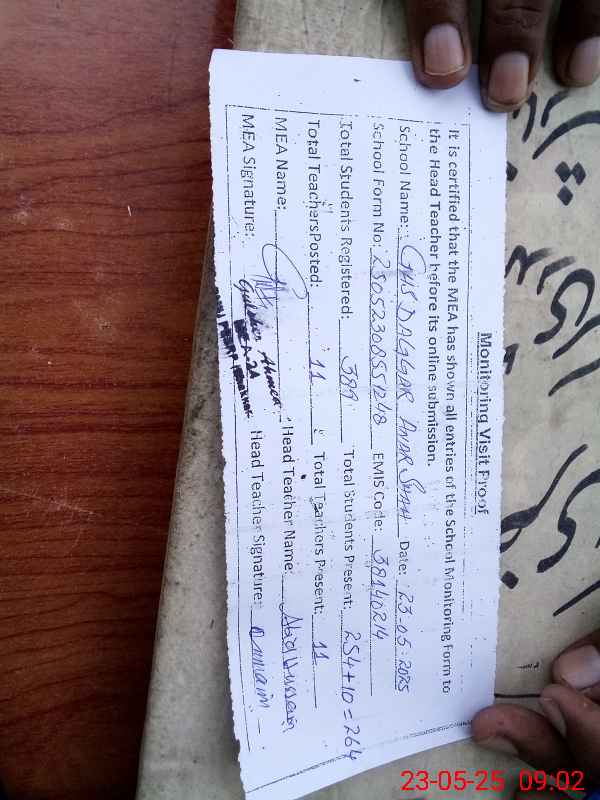 Monitoring Visit Proof
It is certified that the MEA has shown all entries of the School Monitoring Form to
the Head Teacher before its online submission.
School Name: GHS DAGGAR ANAR SHAH Date: 23-05-2025
School Form No: 23052308551248 EMIS Code: 38140214
Total Students Registered: 389 Total Students Present: 254+10=264
Total TeachersPosted: 11 Total Teachers Present: 11
MEA Name: Head Teacher Name: Abid Hussain
MEA Signature: Head Teacher Signature:
MEA-2A
23-05-25 09:02